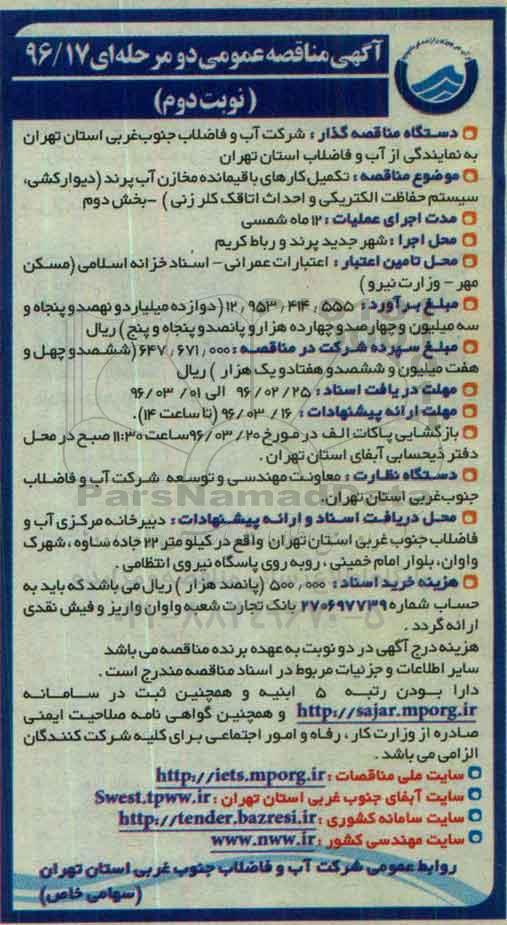 آگهی مناقصه عمومی دو مرحله‌ای ۹۶/۱۷
(نوبت دوم)
دستگاه مناقصه گذار : شرکت آب و فاضلاب جنوب‌غربی استان تهران
به نمایندگی از آب و فاضلاب استان تهران
موضوع مناقصه : تکمیل کارهای باقیمانده مخازن آب پرند (دیوارکشی،
سیستم حفاظت الکتریکی و احداث اتاقک کلر زنی) -بخش دوم
مدت اجرای عملیات : ۱۲ ماه شمسی
محل اجرا : شهر جدید پرند و رباط کریم
محل تامین اعتبار : اعتبارات عمرانی - اسناد خزانه اسلامی (مسکن
مهر - وزارت نیرو)
مبلغ برآورد : ۱۲٫۹۵۳٫۴۱۴٫۵۵۵ (دوازده میلیارد و نهصد و پنجاه و
سه میلیون و چهارصد و چهارده هزار و پانصد و پنجاه و پنج) ریال
مبلغ سپرده شرکت در مناقصه : ۶۴۷٫۶۷۱٫۰۰۰ (ششصد و چهل و
هفت میلیون و ششصد و هفتاد و یک هزار) ریال
مهلت دریافت اسناد : ۹۶/۰۲/۲۵ الی ۹۶/۰۳/۰۱
مهلت ارائه پیشنهادات : ۹۶/۰۳/۱۶ (تا ساعت ۱۴).
بازگشایی پاکات الف در مورخ ۹۶/۰۳/۲۰ ساعت ۱۱:۳۰ صبح در محل
دفتر ذیحسابی آبفای استان تهران.
دستگاه نظارت : معاونت مهندسی و توسعه شرکت آب و فاضلاب
جنوب‌غربی استان تهران.
محل دریافت اسناد و ارائه پیشنهادات : دبیرخانه مرکزی آب و
فاضلاب جنوب غربی استان تهران واقع در کیلومتر ۲۲ جاده ساوه ، شهرک
واوان، بلوار امام خمینی ، روبه روی پاسگاه نیروی انتظامی.
هزینه خرید اسناد : ۵۰۰٫۰۰۰ (پانصد هزار) ریال می باشد که باید به
حساب شماره ۲۷۰۶۹۷۷۳۹ بانک تجارت شعبه واوان واریز و فیش نقدی
ارائه گردد.
هزینه درج آگهی در دو نوبت به عهده برنده مناقصه می باشد
سایر اطلاعات و جزئیات مربوط در اسناد مناقصه مندرج است.
دارا بودن رتبه ۵ ابنیه و همچنین ثبت در سامانه
http://sajar.mporg.ir و همچنین گواهی نامه صلاحیت ایمنی
صادره از وزارت کار ، رفاه و امور اجتماعی برای کلیه شرکت کنندگان
الزامی می باشد.
سایت ملی مناقصات : http://iets.mporg.ir
سایت آبفای جنوب غربی استان تهران : Swest.tpww.ir
سایت سامانه کشوری : http://tender.bazresi.ir
سایت مهندسی کشور : www.nww.ir
روابط عمومی شرکت آب و فاضلاب جنوب غربی استان تهران
(سهامی خاص)
ParsNamadData
۰۲۱-۸۸۳۴۹۶۷۰-۵